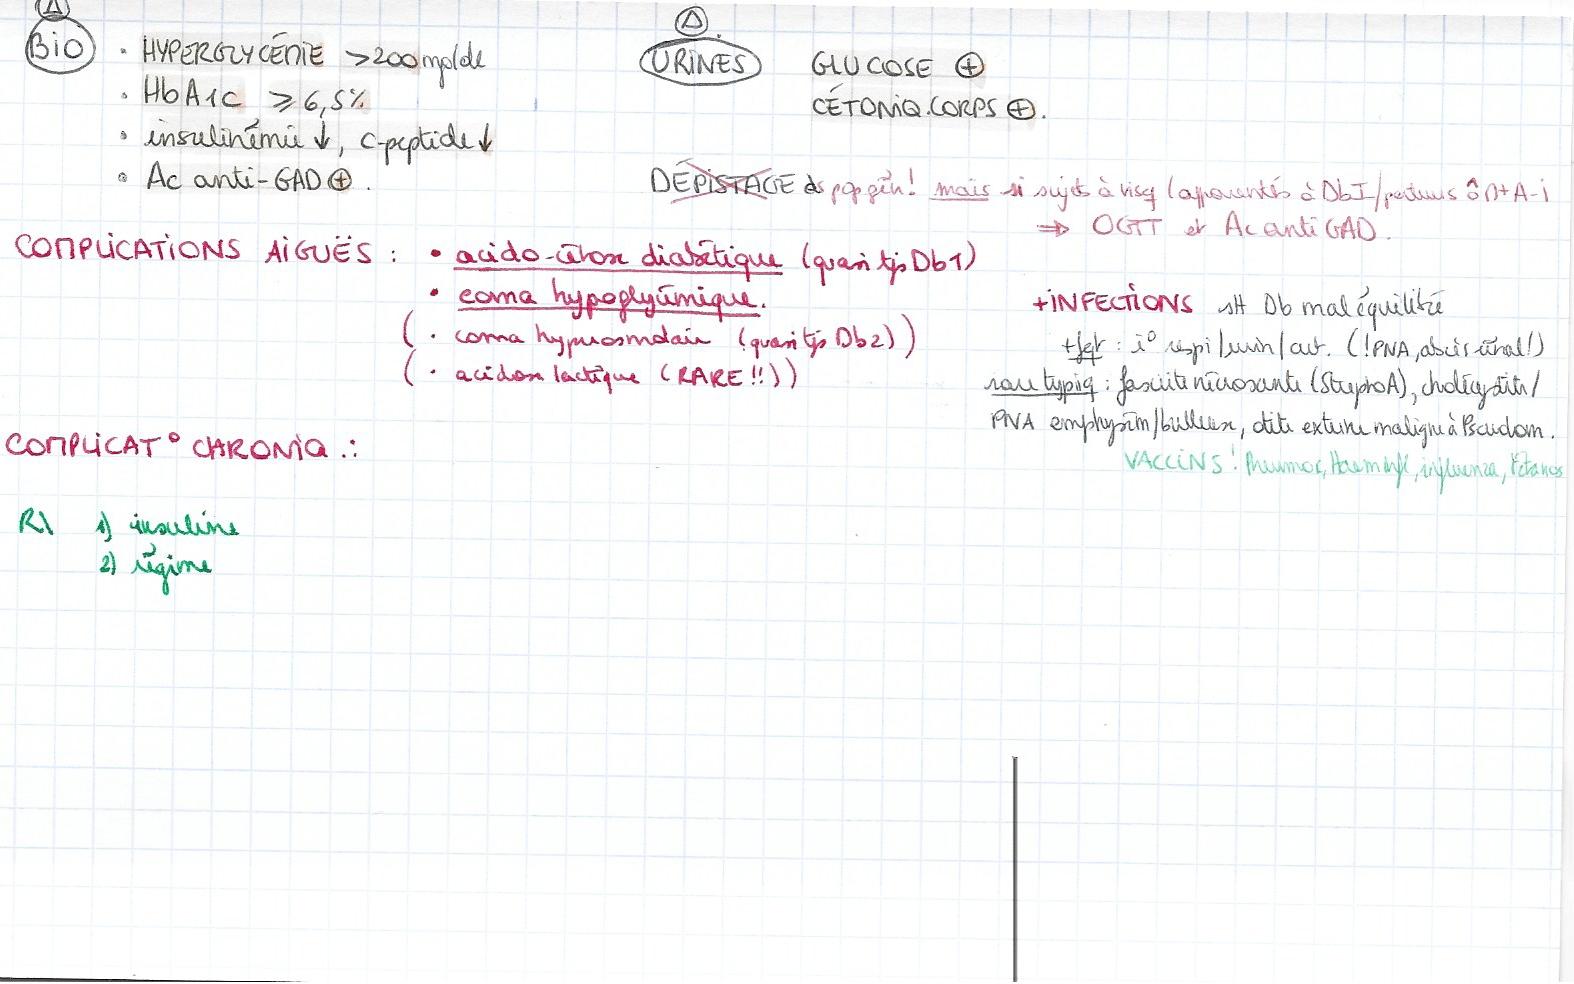 Δ
Bio
. HYPERGLYCÉMIE >200 mg/dl
. HbA1c ≥ 6,5%
. insulinémie ↓, C-peptide ↓
. Ac anti-GAD ⊕.
Δ
URINES
GLUCOSE ⊕
CÉTONIQ. CORPS ⊕.
DÉPISTAGE ds pop gén! mais si sujets à risq (apparentés à DbI/
⇒ OGTT et Ac anti GAD.
COMPLICATIONS AIGUËS :
• acido-cétose diabétique (quasi tjs Db1)
• coma hypoglycémique.
( . coma hyperosmolaire (quasi tjs Db2))
( . acidose lactique (RARE!!))
+INFECTIONS Db mal équilibré
+fqt : i° respi/urin/cut. (!PNA, abcès rénal!)
rare typiq : fasciite nécrosante (StreptoA), cholécystite/
PNA emphysém/bulleuse, otite externe maligne à Pseudom.
VACCINS! Pneumoc, Haem infl, influenza, tétanos
COMPLICAT° CHRONIQ .:
R\ 1) insuline
2) régime